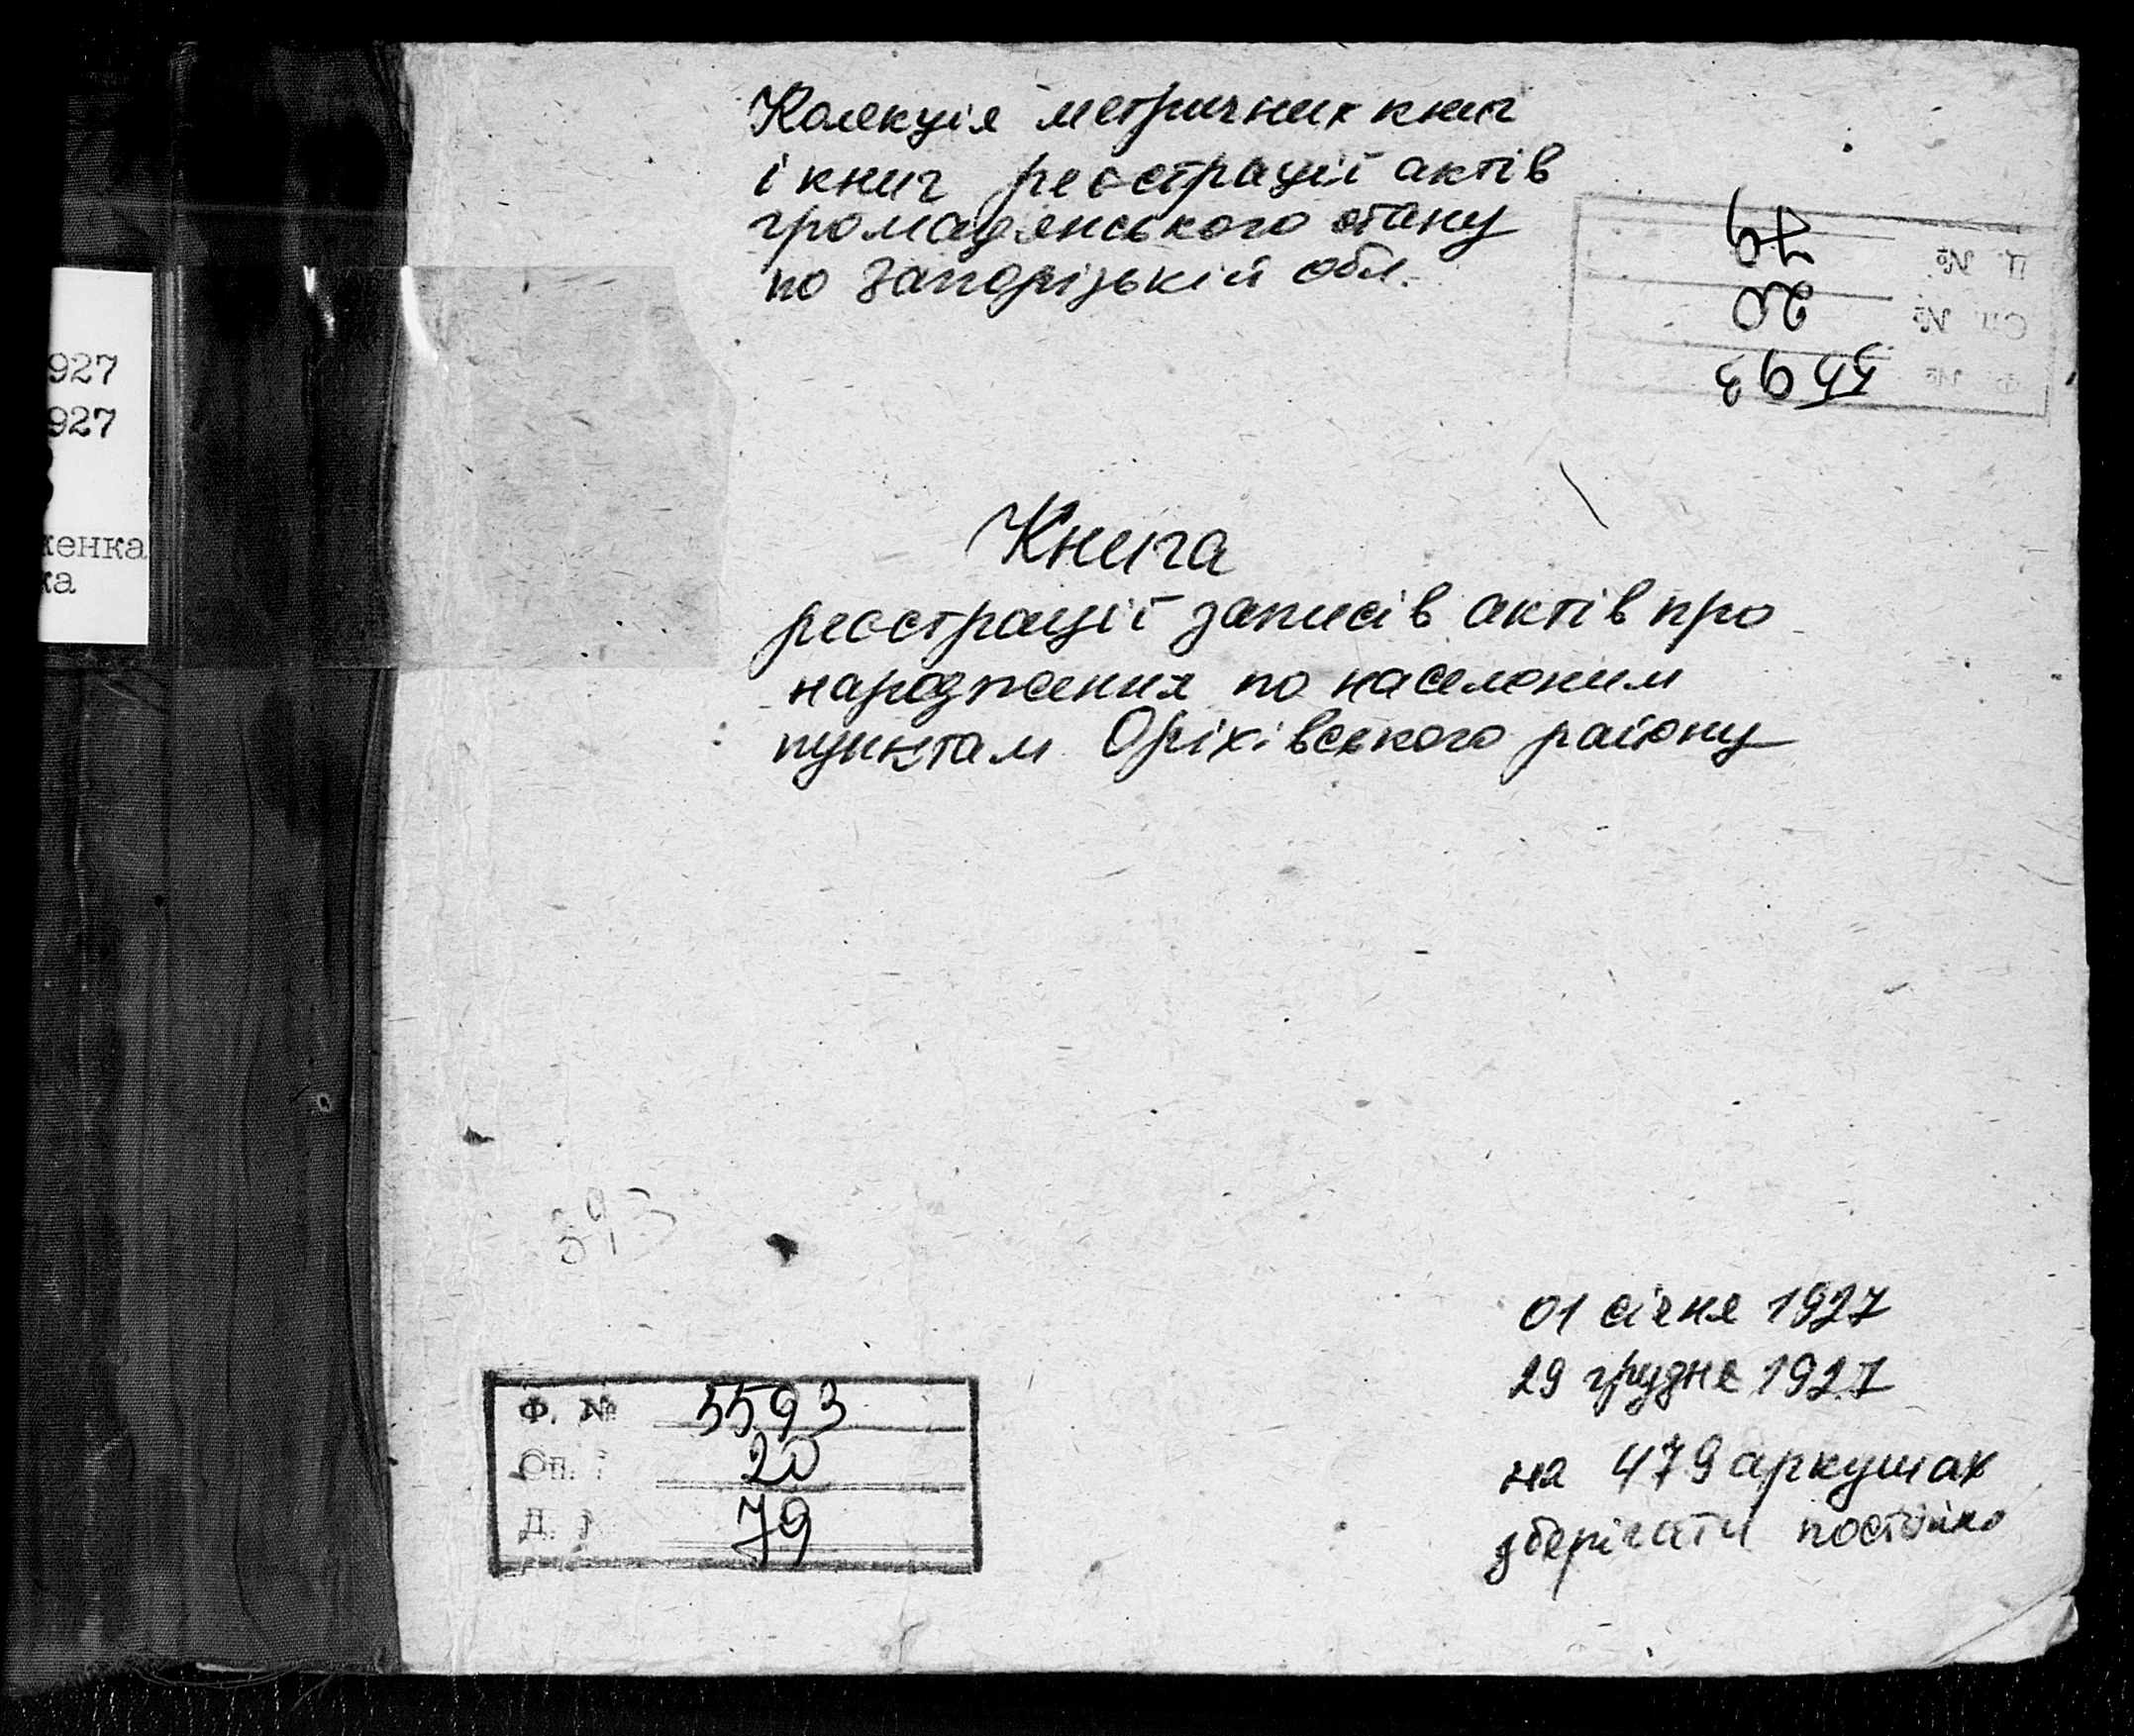 Колекція метричних книг
і книг реєстрації актів
громадянського стану
по Запорізькій обл.
Д. № 79
Оп. № 20
Ф. № 5593
927
927
женка
ка
Книга
реєстрації записів актів про
народження по населеним
пунктам Оріхівського району
393
01 січня 1927
29 грудня 1927
на 479 аркушах
зберігати постійно
Ф. № 5593
Оп. 20
Д. 79